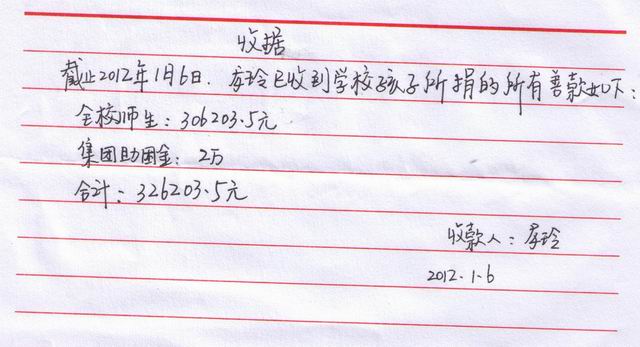 收据
截止2012年1月6日. 玲已收到学校孩子所捐的所有善款如下:
全校师生: 306203.5元
集团助困金: 2万
合计: 326203.5元
收款人: 玲
2012.1.6